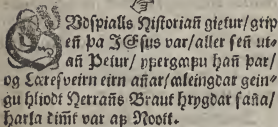 GVdspialls Historiañ gietur/grip
eñ þa JEsus var/aller señ uti-
añ Petur/ yþergaþu hañ par/
og Læresveirn eirn añar/aleingdar gein-
gu hliodt Herrañs Braut hrygdar saña/
harla diñt var aþ Noott.